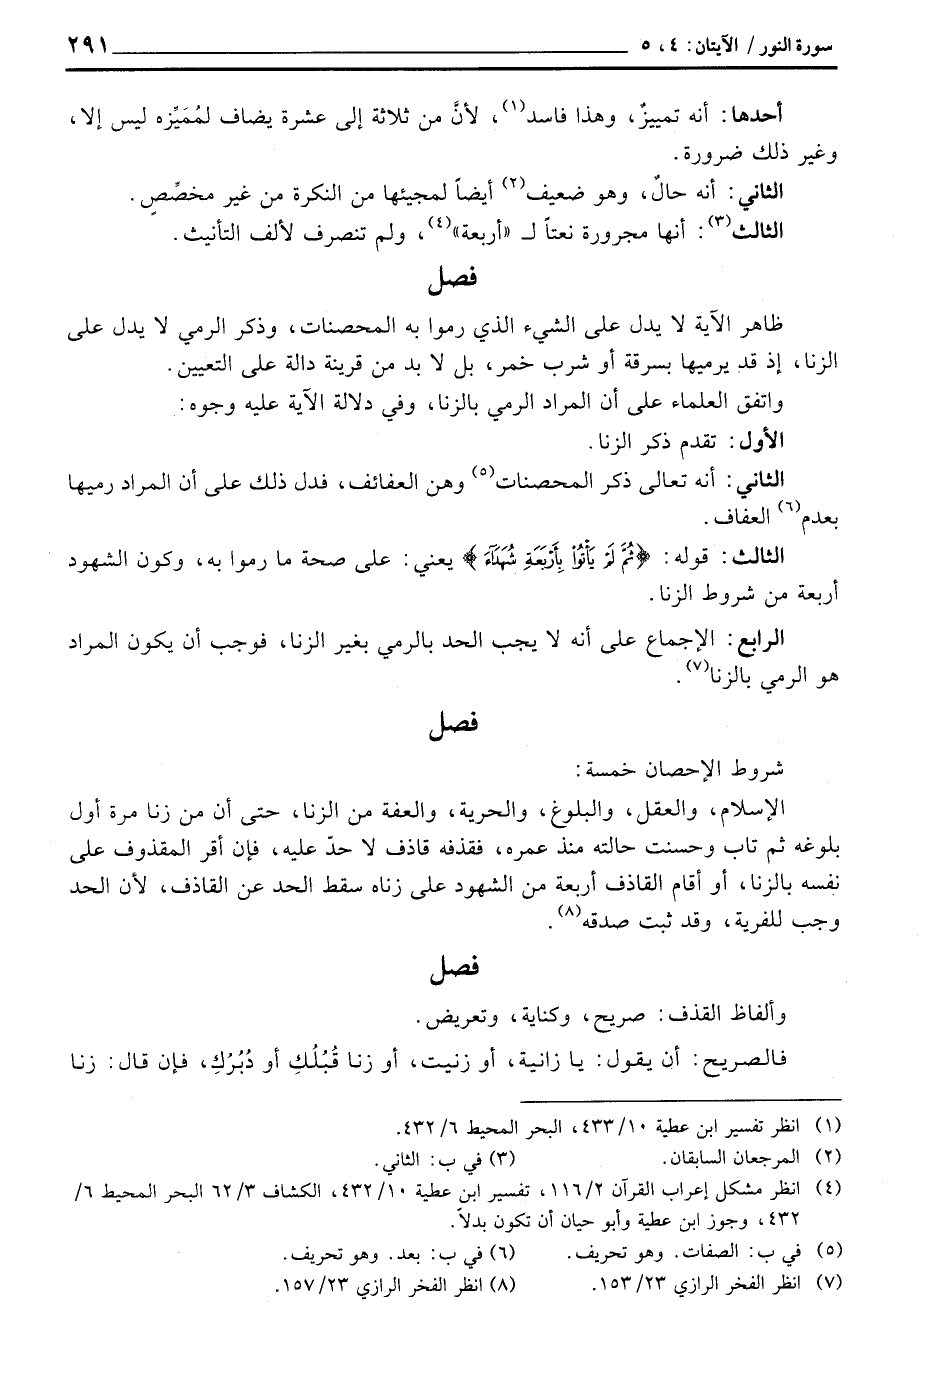 سورة النور / الآيتان: ٤، ٥ ٢٩١
أحدها: أنه تمييزٌ، وهذا فاسد(١)، لأنَّ من ثلاثة إلى عشرة يضاف لمُمَيِّزه ليس إلا،
وغير ذلك ضرورة.
الثاني: أنه حالٌ، وهو ضعيف(٢) أيضاً لمجيئها من النكرة من غير مخصِّصٍ.
الثالث(٣): أنها مجرورة نعتاً لـ «أربعة»(٤)، ولم تنصرف لألف التأنيث.
فصل
ظاهر الآية لا يدل على الشيء الذي رموا به المحصنات، وذكر الرمي لا يدل على
الزنا، إذ قد يرميها بسرقة أو شرب خمر، بل لا بد من قرينة دالة على التعيين.
واتفق العلماء على أن المراد الرمي بالزنا، وفي دلالة الآية عليه وجوه:
الأول: تقدم ذكر الزنا.
الثاني: أنه تعالى ذكر المحصنات(٥) وهن العفائف، فدل ذلك على أن المراد رميها
بعدم(٦) العفاف.
الثالث: قوله: ﴿ثُمَّ لَمْ يَأْتُوا بِأَرْبَعَةِ شُهَدَآءَ﴾ يعني: على صحة ما رموا به، وكون الشهود
أربعة من شروط الزنا.
الرابع: الإجماع على أنه لا يجب الحد بالرمي بغير الزنا، فوجب أن يكون المراد
هو الرمي بالزنا(٧).
فصل
شروط الإحصان خمسة:
الإسلام، والعقل، والبلوغ، والحرية، والعفة من الزنا، حتى أن من زنا مرة أول
بلوغه ثم تاب وحسنت حالته منذ عمره، فقذفه قاذف لا حدّ عليه، فإن أقر المقذوف على
نفسه بالزنا، أو أقام القاذف أربعة من الشهود على زناه سقط الحد عن القاذف، لأن الحد
وجب للفرية، وقد ثبت صدقه(٨).
فصل
وألفاظ القذف: صريح، وكناية، وتعريض.
فالصريح: أن يقول: يا زانية، أو زنيت، أو زنا قُبُلُكِ أو دُبُرُكِ، فإن قال: زنا
(١) انظر تفسير ابن عطية ١٠/ ٤٣٣، البحر المحيط ٦/ ٤٣٢.
(٢) المرجعان السابقان. (٣) في ب: الثاني.
(٤) انظر مشكل إعراب القرآن ٢/ ١١٦، تفسير ابن عطية ١٠/ ٤٣٢، الكشاف ٣/ ٦٢ البحر المحيط ٦/
٤٣٢، وجوز ابن عطية وأبو حيان أن تكون بدلاً.
(٥) في ب: الصفات. وهو تحريف. (٦) في ب: بعد. وهو تحريف.
(٧) انظر الفخر الرازي ٢٣/ ١٥٣. (٨) انظر الفخر الرازي ٢٣/ ١٥٧.